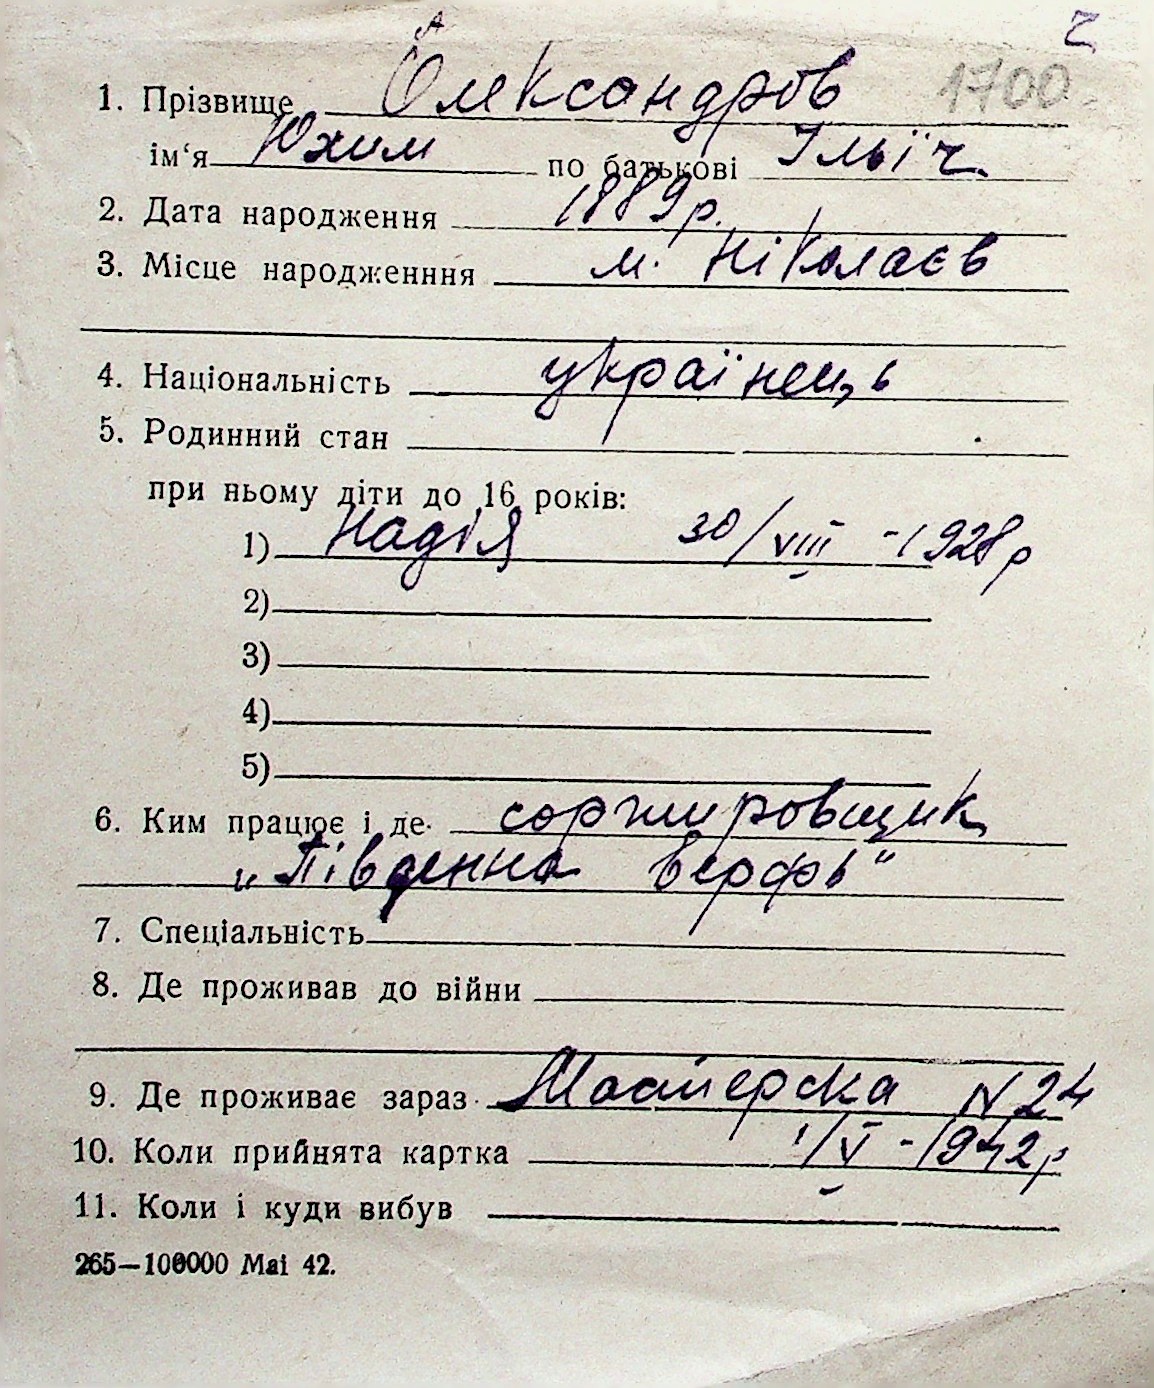 А
ч
1700
1. Прізвище Олександров
ім‘я Юхим по батькові Ільїч
2. Дата народження 1889 р.
3. Місце народженння м. Ніколаєв
4. Національність українець
5. Родинний стан
при ньому діти до 16 років:
1) Надія 30/VIII - 1928 р
2)
3)
4)
5)
6. Ким працює і де сортировщик
„Південна верфь“
7. Спеціальність
8. Де проживав до війни
9. Де проживає зараз N 24
10. Коли прийнята картка 1/V - 1942 р
11. Коли і куди вибув
265—100000 Mai 42.